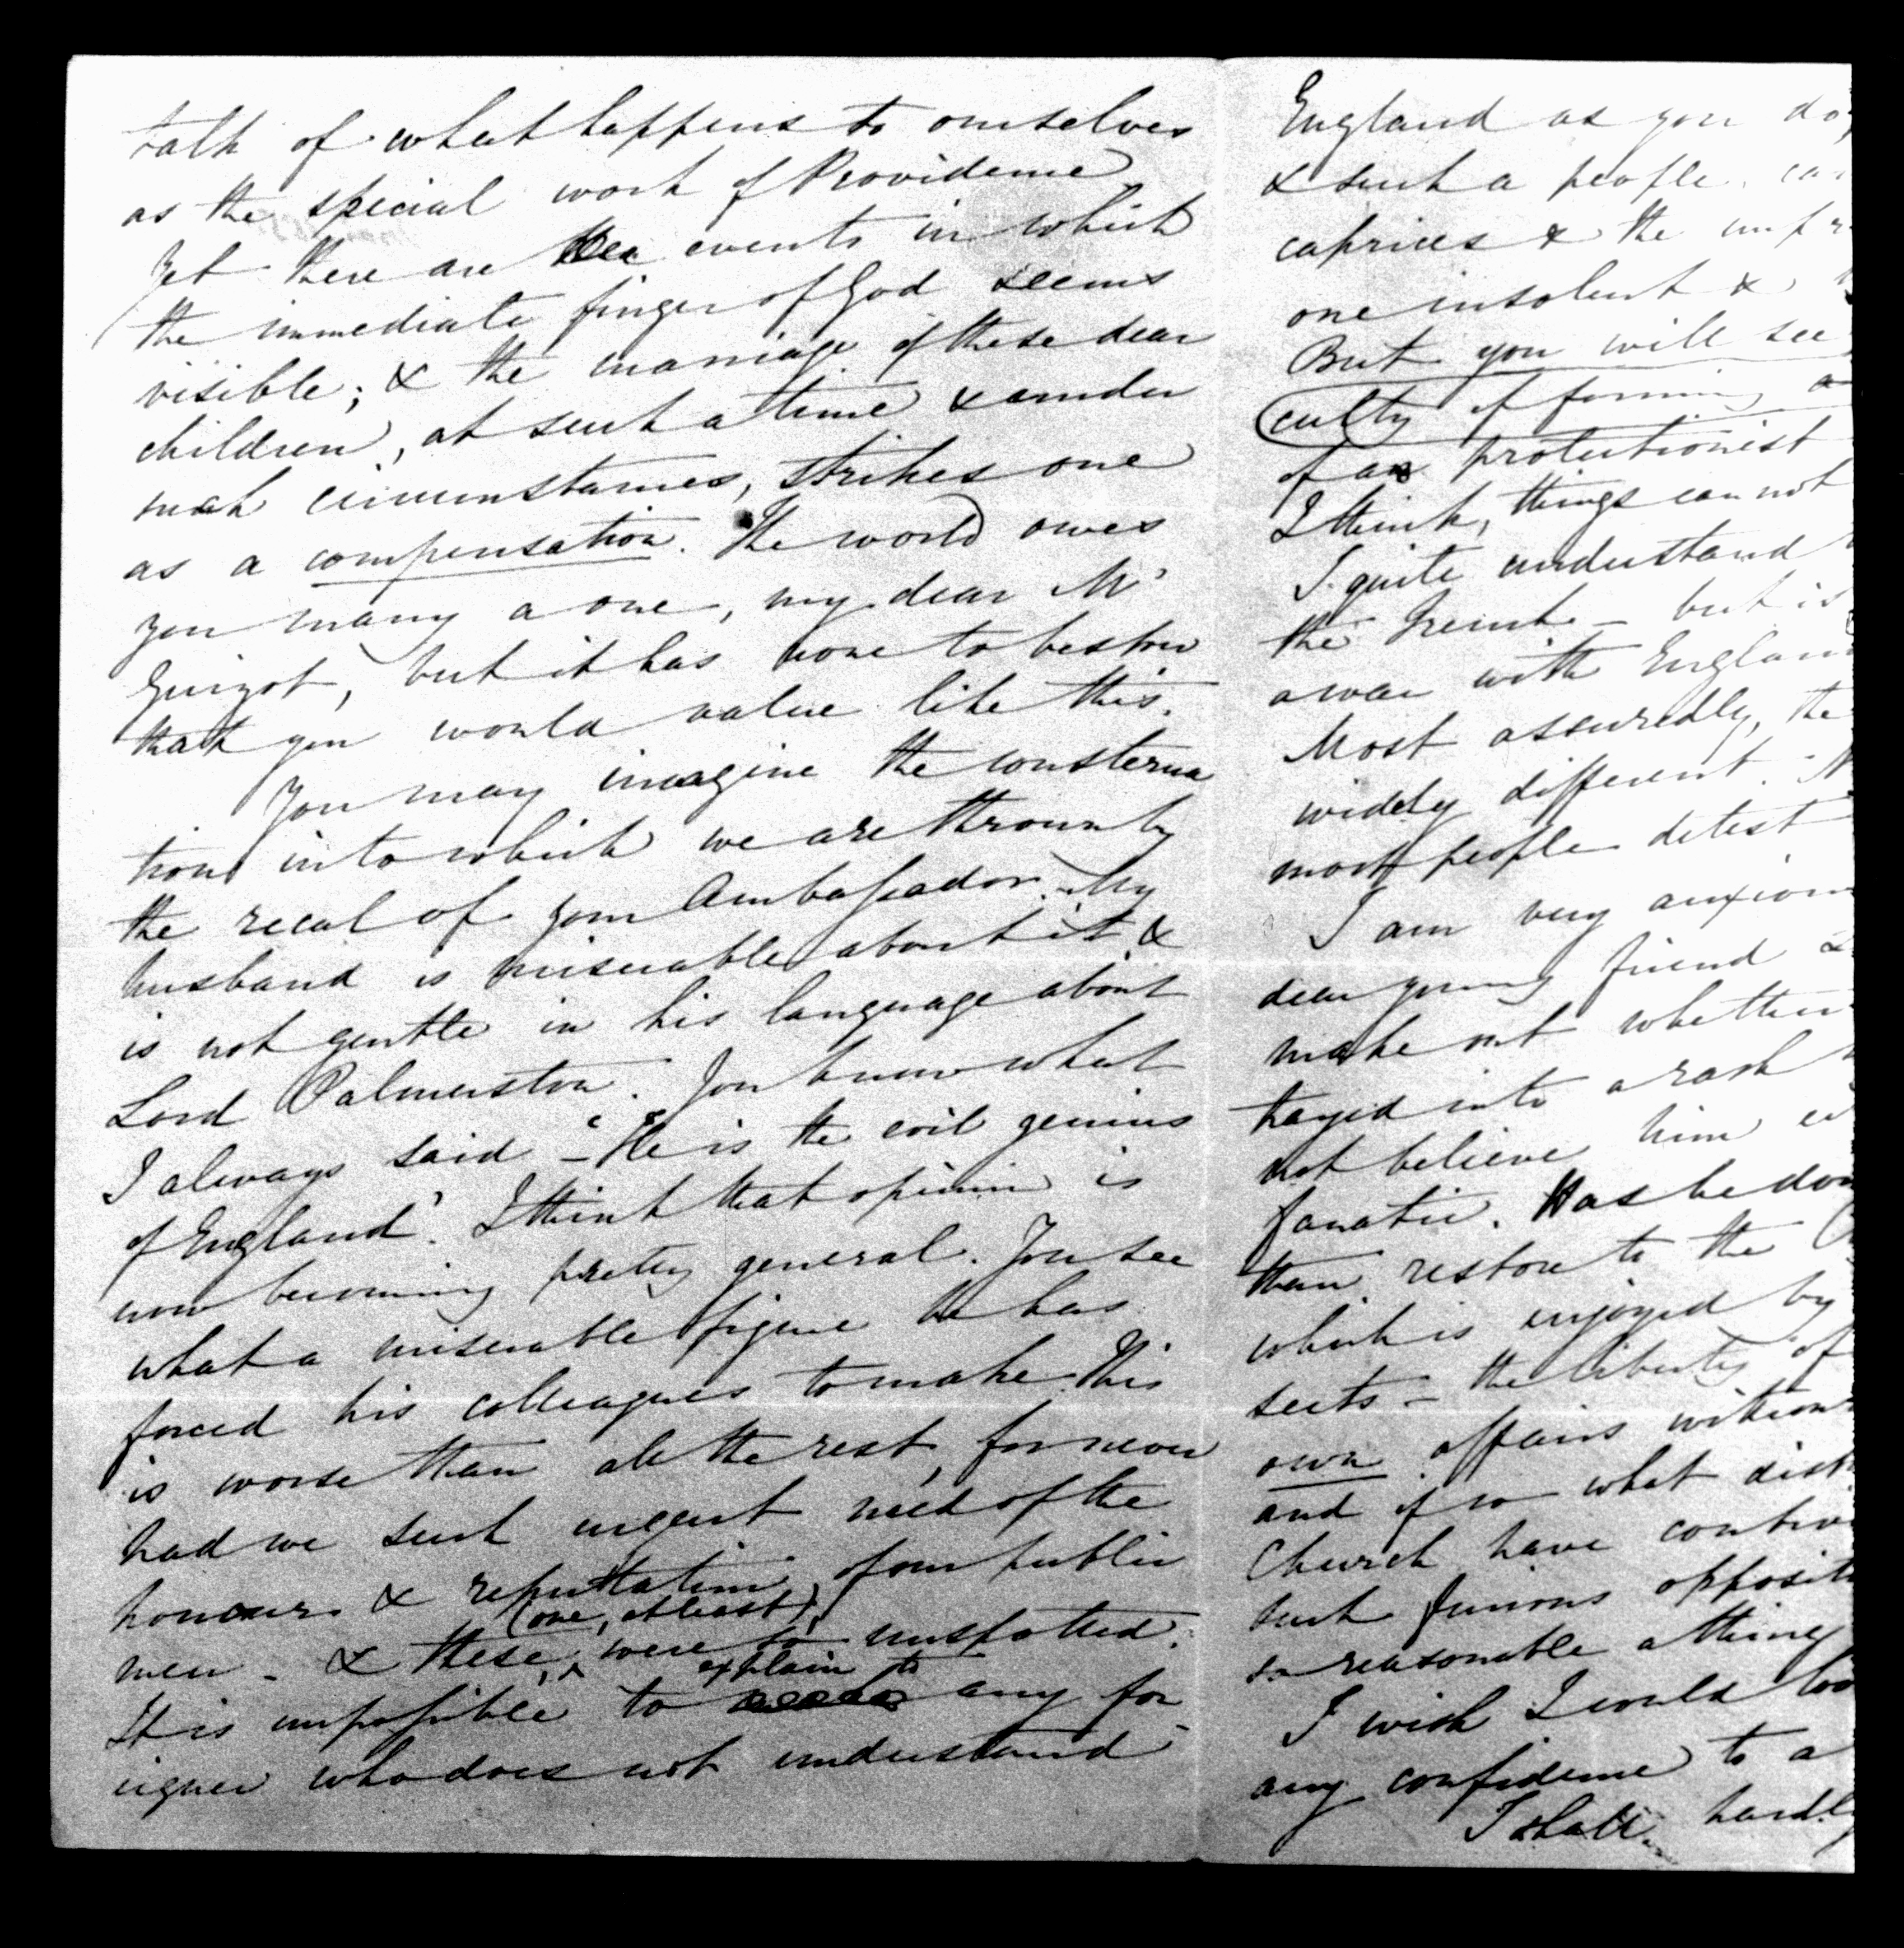 talk of what happens to ourselves
as the special work of Providence
Yet there are events in which
the immediate finger of God seems
visible; & the marriage of these dear
children, at such a time & under
such circumstances, strikes one
as a compensation. The world owes
you many a one, my dear Mr
Guizot, but it has none to bestow
that you would value like this.
You may imagine the consterna
tion into which we are thrown by
the recal of your Ambassador. My
husband is miserable about it &
is not gentle in his language about
Lord Palmerston. You know what
I always said – 'He is the evil genius
of England'. I think that opinion is
now becoming pretty general. You see
what a miserable figure he has
forced his colleagues to make. This
is worse than all the rest, for never
had we such urgent need of the
honour & reputation of our public
men – & these (one, at least) were so unspotted.
It is impossible to explain to any for
eigner who does not understand
England as you do,
& such a people, ca
caprices & the
one insolent &
But you will see
culty of forming a
of a protectionist
I think, things cannot
I quite understand
the French – but is
a war with England
Most assuredly, the
widely different. N
most people detest
I am very anxious
dear young friend
make out whether
trayed into a rash
not believe him
fanatic. Has he don
than restore to the
which is enjoyed by
sects – the liberty of
own affairs without
and if so what
Church have contriv
such furious oppositi
so reasonable a thing
I wish I could
any confidence to a
I shall hardly